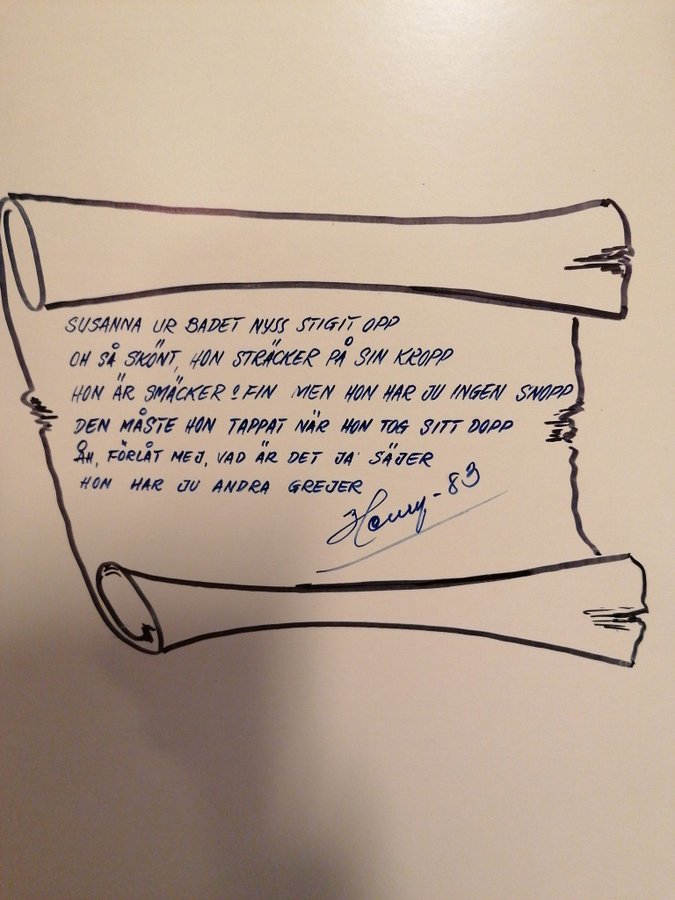 SUSANNA UR BADET NYSS STIGIT OPP
OH SÅ SKÖNT, HON STRÄCKER PÅ SIN KROPP
HON ÄR SMÄCKER o FIN MEN HON HAR JU INGEN SNOPP
DEN MÅSTE HON TAPPAT NÄR HON TOG SITT DOPP
ÅH, FÖRLÅT MEJ, VAD ÄR DET JA' SÄJER
HON HAR JU ANDRA GREJER
Henry-83